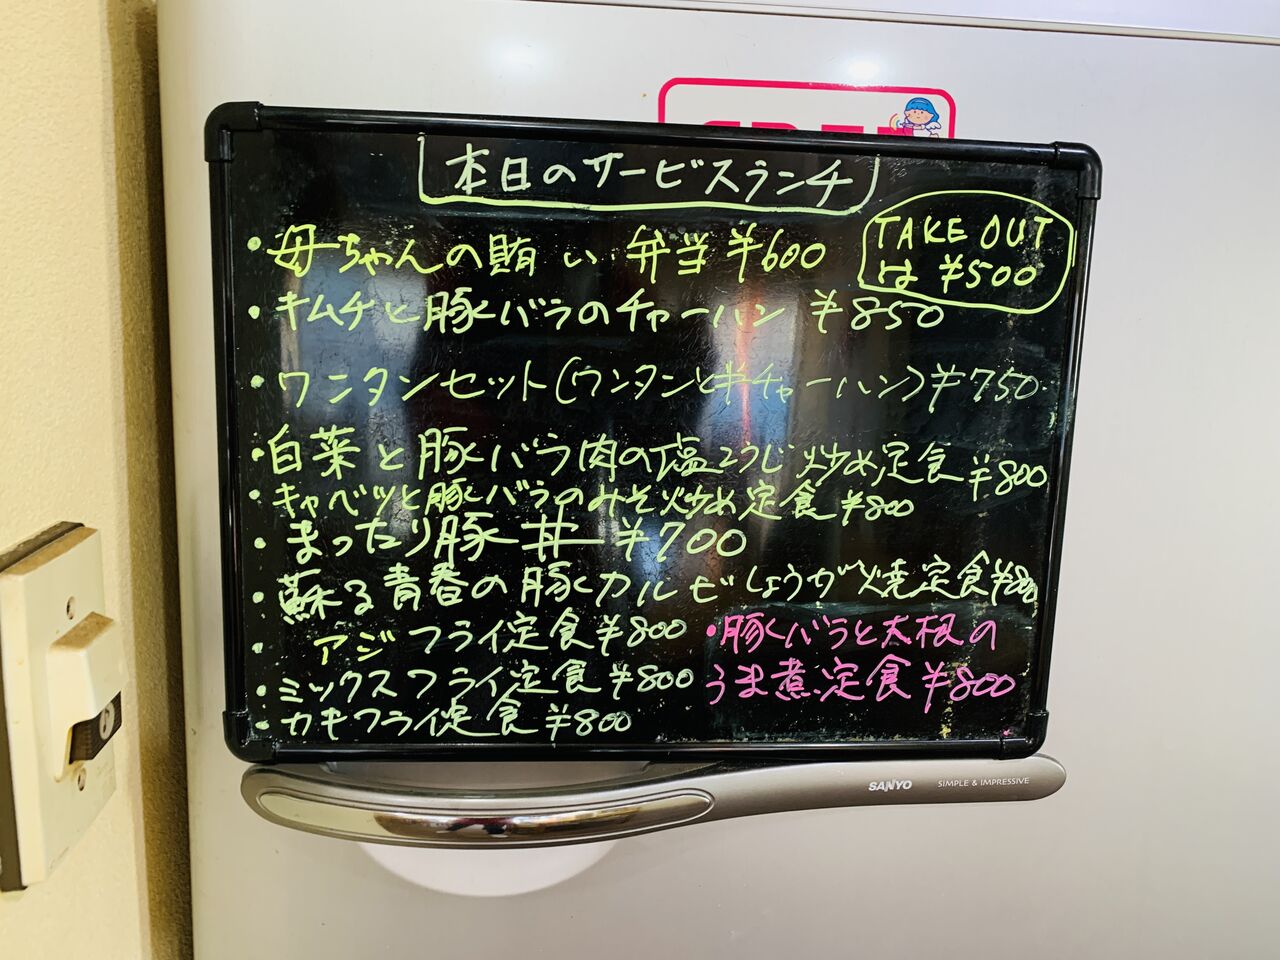 本日のサービスランチ
・母ちゃんの賄い弁当¥600
TAKE OUT
は¥500
・キムチと豚バラのチャーハン ¥850
・ワンタンセット(ワンタンと半チャーハン)¥750
・白菜と豚バラ肉の塩こうじ炒め定食¥800
・キャベツと豚バラのみそ炒め定食¥800
・まったり豚丼¥700
・蘇る青春の豚カルビしょうが焼定食¥800
・アジフライ定食¥800
・ミックスフライ定食¥800
・カキフライ定食¥800
・豚バラと大根の
うま煮定食¥800
SANYO SIMPLE & IMPRESSIVE